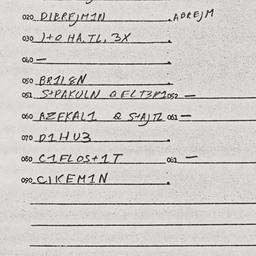 020 DIBREJM1N . ADREJM
030 J+O HA.TL. 3X .
040 —
050 BR1LEN .
051 S+PAKULN & ELT3M1 052 —
060 AZEFKAL1 & S+AJTL 061 —
070 D1HU3
080 C1FLOS+1T 081 —
090 CIKEM1N .